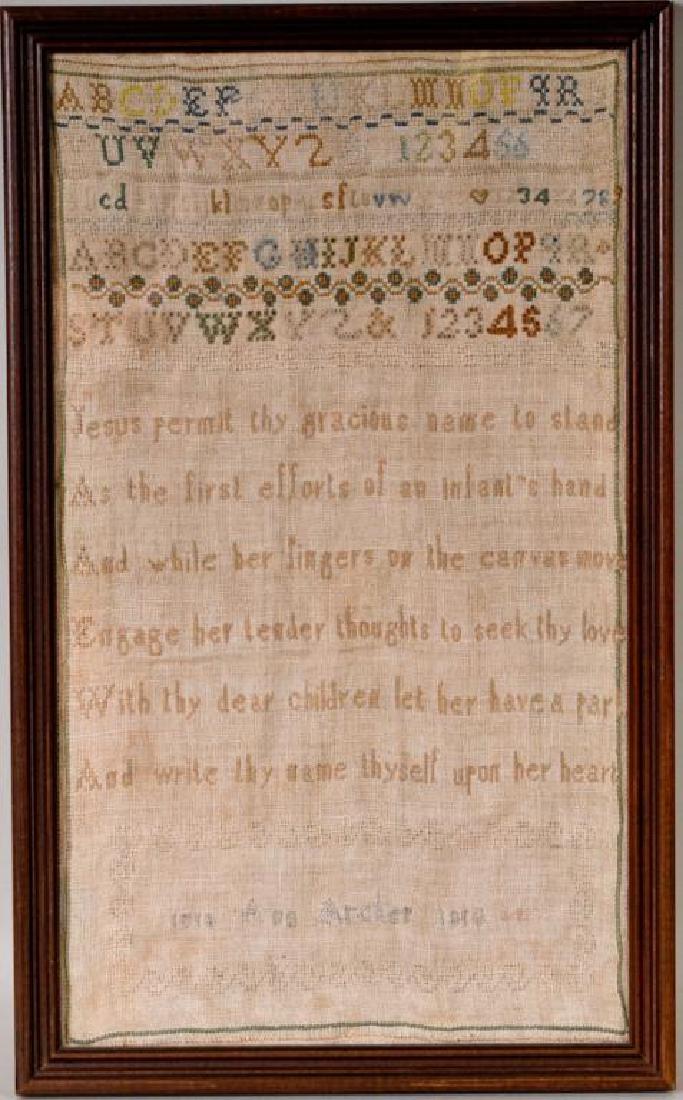 ABCDEF IJKLMNOPQR
UVWXYZ 123456
cd kl op sf uvw 34 78
ABCDEFGHIJKLMNOPQR
STUVWXYZ& 1234567
Jesus permit thy gracious name to stand
As the first efforts of an infant's hand
And while her fingers on the canvas move
Engage her tender thoughts to seek thy love
With thy dear children let her have a part
And write thy name thyself upon her heart
Ann Archer